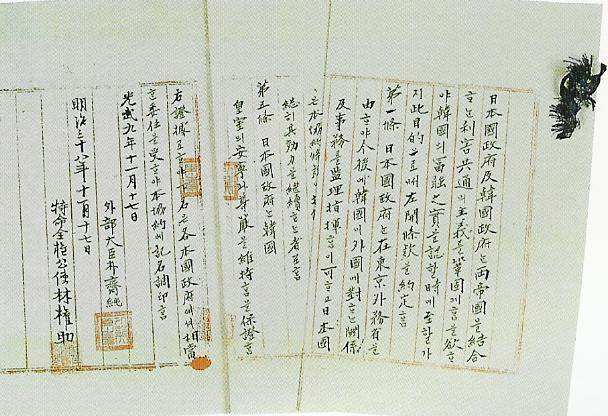 日本國政府及韓國政府ᄂᆞᆫ兩帝國을結合
ᄒᆞᄂᆞᆫ利害共通의主義를鞏固케ᄒᆞᆷ을欲ᄒᆞ
야韓國의富强之實을認ᄒᆞᆯ時에至ᄒᆞᆯ가
지此目的으로써左開條款을約定ᄒᆞᆷ
第一條 日本國政府ᄂᆞᆫ在東京外務省을
由ᄒᆞ야今後에韓國이外國에對ᄒᆞᄂᆞᆫ關係
及事務를監理指揮ᄒᆞᆷ이可ᄒᆞ고日本國
本協約締結
總히其効力을繼續ᄒᆞᄂᆞᆫ者로ᄒᆞᆷ
第五條 日本國政府ᄂᆞᆫ韓國
皇室의安寧과尊嚴을維持ᄒᆞᆷ을保證ᄒᆞᆷ
右證據로ᄒᆞ야下名은各本國政府에셔相當
ᄒᆞᆫ委任을受ᄒᆞ야本協約에記名調印ᄒᆞᆷ
光武九年十一月十七日
外部大臣朴齊純
明治三十八年十一月十七日
特命全權公使林權助